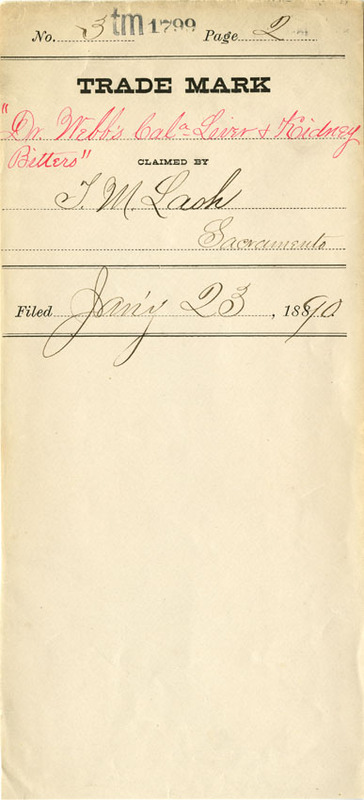 No. 3 tm 1799 Page 2
TRADE MARK
"Dr. Webb's Cala Liver & Kidney
Bitters"
CLAIMED BY
T. M. Lash
Sacramento
Filed Jan'y 23, 1890